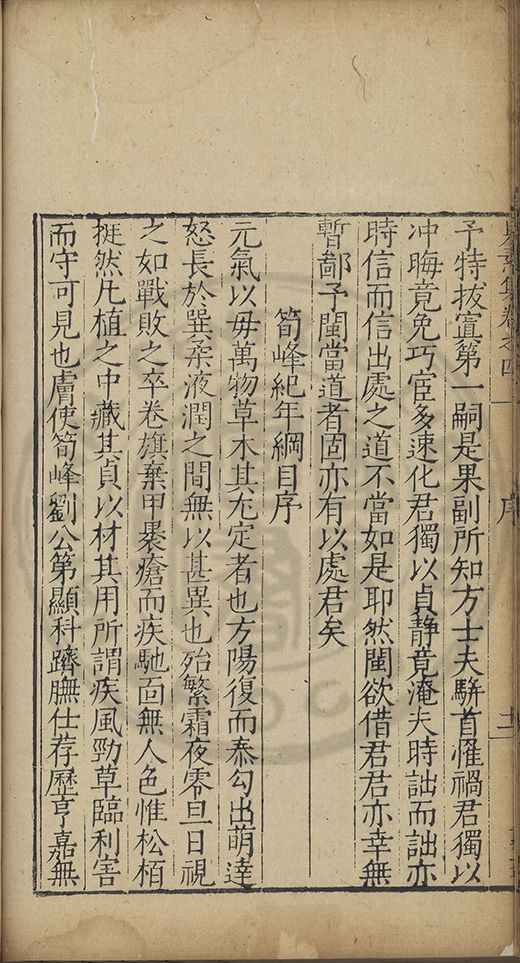 集卷之四　序　二
予特拔寘第一嗣是果副所知方士夫駢首罹禍君獨以
冲晦竟免巧宦多速化君獨以貞静竟淹夫時詘而詘亦
時信而信出處之道不當如是耶然閩欲借君君亦幸無
暫鄙予閩當道者固亦有以處君矣
筍峰紀年綱目序
元氣以毋萬物草木其尤定者也方陽復而泰勾出萌達
怒長於巽柔液潤之間無以甚異也殆繁霜夜零旦日視
之如戰敗之卒卷旗棄甲褁瘡而疾馳靣無人色惟松栢
挺然凢植之中藏其貞以材其用所謂疾風勁草臨利害
而守可見也膚使筍峰劉公第顯科躋膴仕荐歷亨嘉無